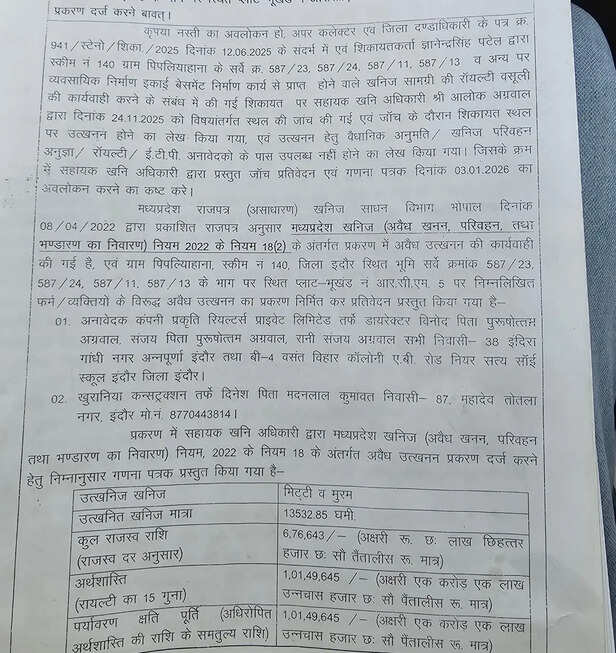 प्रकरण दर्ज करने बाबत्।
कृपया नस्ती का अवलोकन हो, अपर कलेक्टर एवं जिला दण्डाधिकारी के पत्र क्र.
941/स्टेनो/शिका./2025 दिनांक 12.06.2025 के संदर्भ में एवं शिकायतकर्ता ज्ञानेन्द्रसिंह पटेल द्वारा
स्कीम नं 140 ग्राम पिपलियाहाना के सर्वे क्र. 587/23, 587/24, 587/11, 587/13 व अन्य पर
व्यवसायिक निर्माण इकाई बेसमेंट निर्माण कार्य से प्राप्त होने वाले खनिज सामग्री की रॉयल्टी वसूली
की कार्यवाही करने के संबंध में की गई शिकायत पर सहायक खनि अधिकारी श्री आलोक अग्रवाल
द्वारा दिनांक 24.11.2025 को विषयातर्गत स्थल की जांच की गई एवं जॉच के दौरान शिकायत स्थल
पर उत्खनन होने का लेख किया गया, एवं उत्खनन हेतु वैधानिक अनुमति/ खनिज परिवहन
अनुज्ञा/ रॉयल्टी/ ई.टी.पी. अनावेदको के पास उपलब्ध नहीं होने का लेख किया गया। जिसके क्रम
में सहायक खनि अधिकारी द्वारा प्रस्तुत जॉच प्रतिवेदन एवं गणना पत्रक दिनांक 03.01.2026 का
अवलोकन करने का कष्ट करे।
मध्यप्रदेश राजपत्र (असाधारण) खनिज साधन विभाग भोपाल दिनांक
08/04/2022 द्वारा प्रकाशित राजपत्र अनुसार मध्यप्रदेश खनिज (अवैध खनन, परिवहन, तथा
भण्डारण का निवारण) नियम 2022 के नियम 18(2) के अंतर्गत प्रकरण में अवैध उत्खनन की कार्यवाही
की गई है, एवं ग्राम पिपल्याहाना, स्कीम नं 140, जिला इंदौर स्थित भूमि सर्वे क्रमांक 587/23,
587/24, 587/11, 587/13 के भाग पर स्थित प्लाट–भूखंड नं आर.सी.एम. 5 पर निम्नलिखित
फर्म/व्यक्तियो के विरूद्ध अवैध उत्खनन का प्रकरण निर्मित कर प्रतिवेदन प्रस्तुत किया गया है–
01. अनावेदक कंपनी प्रकृति रियल्टर्स प्राइवेट लिमिटेड तर्फे डायरेक्टर विनोद पिता पुरूषोत्तम
अग्रवाल, संजय पिता पुरूषोत्तम अग्रवाल, रानी संजय अग्रवाल सभी निवासी– 38 इंदिरा
गांधी नगर अन्नपूर्णा इंदौर तथा बी–4 वसंत विहार कॉलोनी ए.बी. रोड नियर सत्य सॉई
स्कूल इंदौर जिला इंदौर।
02. खुरानिया कन्सट्रक्शन तर्फे दिनेश पिता मदनलाल कुमावत निवासी– 87, महादेव तोतला
नगर, इंदौर मो.नं. 8770443814।
प्रकरण में सहायक खनि अधिकारी द्वारा मध्यप्रदेश खनिज (अवैध खनन, परिवहन
तथा भण्डारण का निवारण) नियम, 2022 के नियम 18 के अंतर्गत अवैध उत्खनन प्रकरण दर्ज करने
हेतु निम्नानुसार गणना पत्रक प्रस्तुत किया गया है–
उत्खनिज खनिज मिट्टी व मुरम
उत्खनित खनिज मात्रा 13532.85 घमी.
कुल राजस्व राशि 6,76,643/– (अक्षरी रू. छः लाख छिहत्तर
(राजस्व दर अनुसार) हजार छः सौ तैंतालीस रू. मात्र)
अर्थशास्ति 1,01,49,645 /– (अक्षरी एक करोड़ एक लाख
(रायल्टी का 15 गुना) उन्नचास हजार छः सौ पैंतालीस रू. मात्र)
पर्यावरण क्षति पूर्ति (अधिरोपित 1,01,49,645 /– (अक्षरी एक करोड़ एक लाख
अर्थशास्ति की राशि के समतुल्य राशि) उन्नचास हजार छः सौ पैंतालीस रू. मात्र)